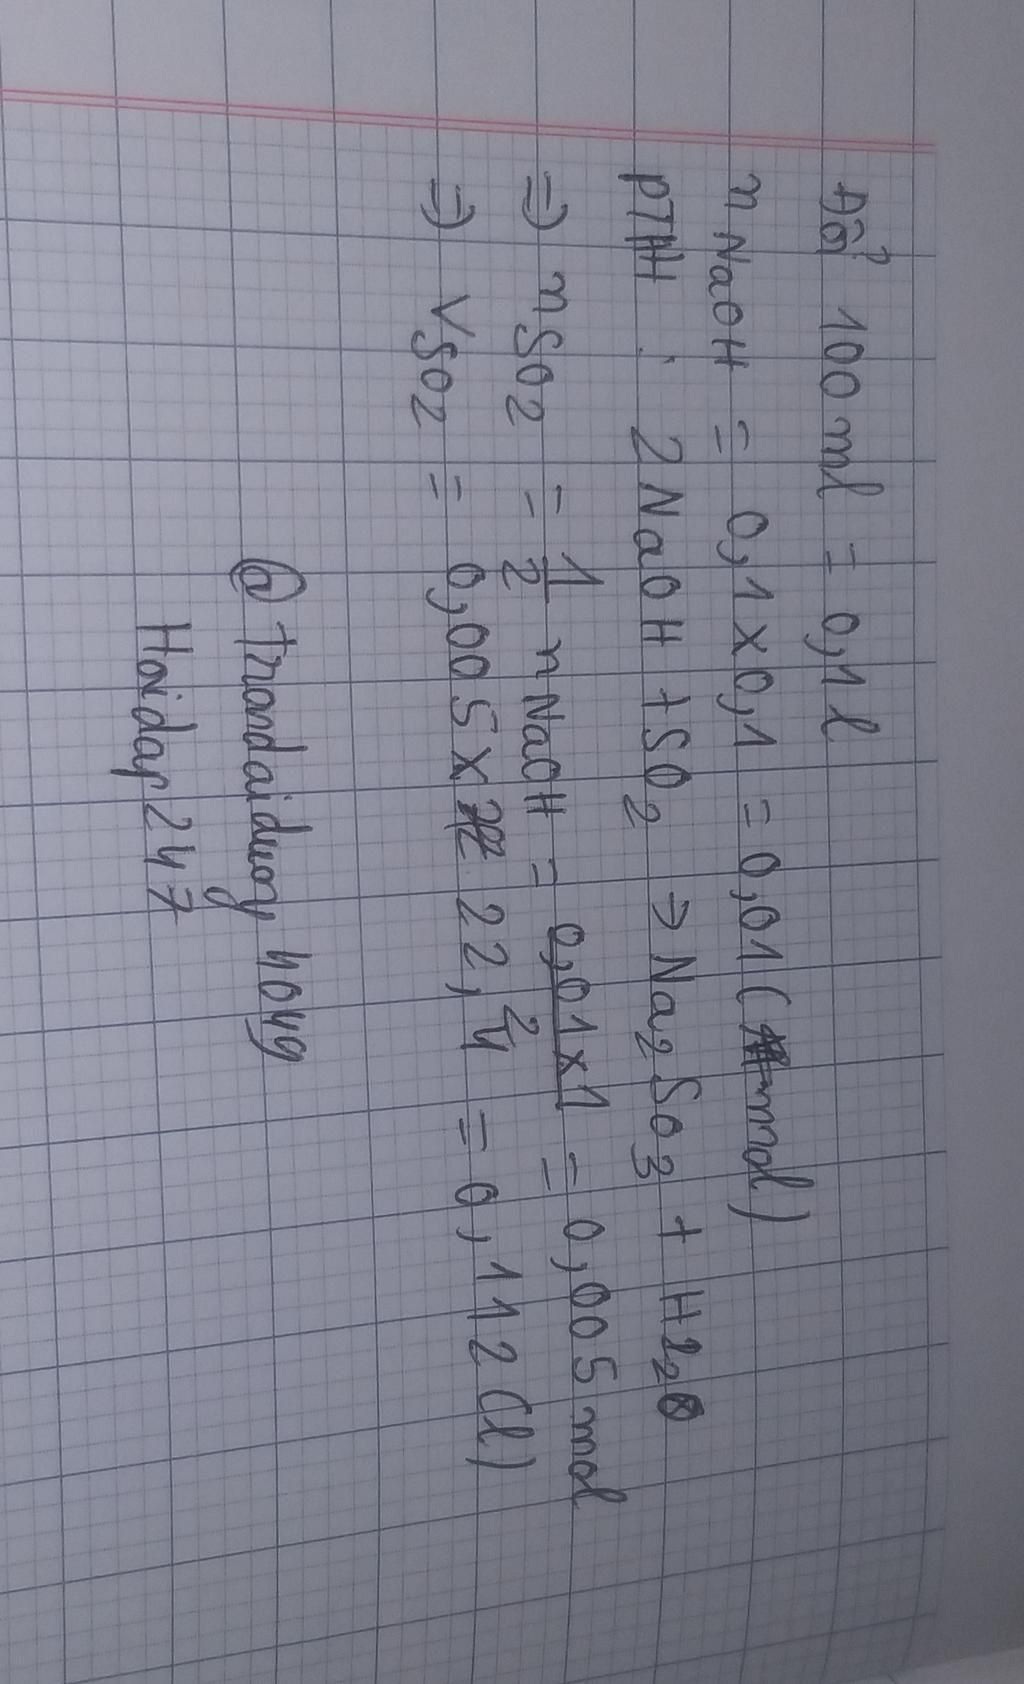 Đổi 100ml = 0,1l
nNaOH = 0,1x0,1 = 0,01(mol)
PTHH : 2NaOH + SO2 → Na2SO3 + H2O
⇒ nSO2 = 1/2 nNaOH = 0,01x1/2 = 0,005mol
⇒ VSO2 = 0,005x 22,4 = 0,112(l)
@Trandaiduong
Hoidap247